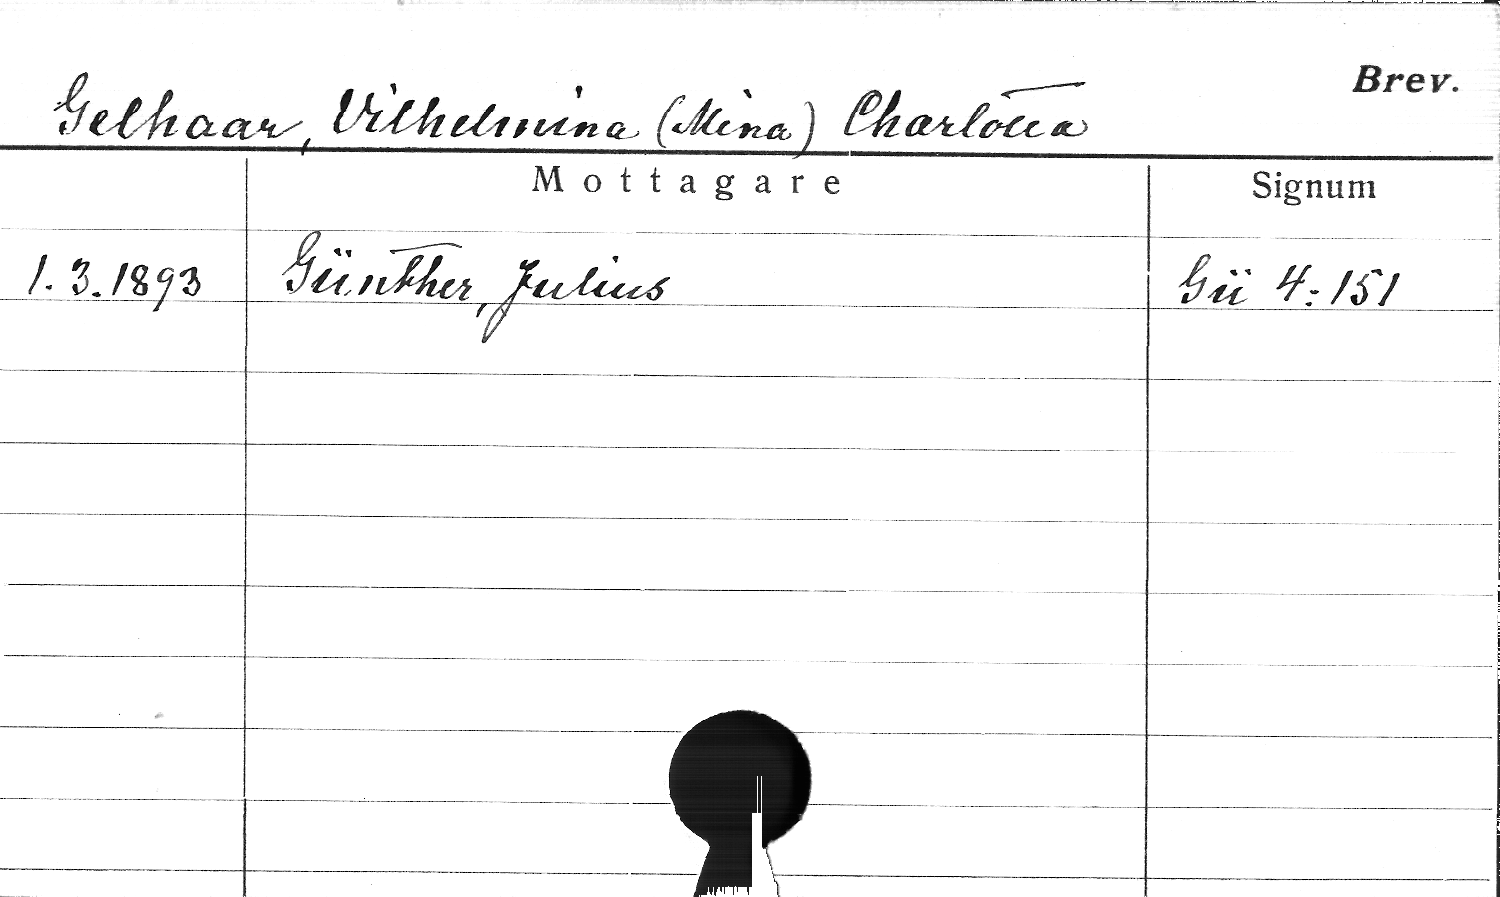 Brev.
Gelhaar, Vilhelmina (Mina) Charlotta
Mottagare Signum
1.3.1893 Günther, Julius Gü 4:151